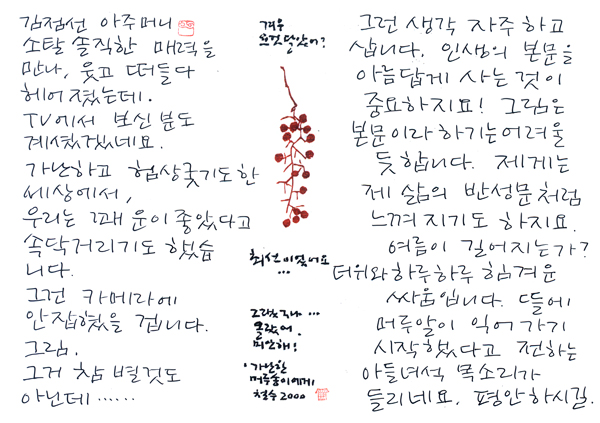 김점선 아주머니
소탈 솔직한 매력을
만나, 웃고 떠들다
헤어졌는데.
TV에서 보신 분도
계셨겠네요.
가난하고 험상궂기도 한
세상에서,
우리는 꽤 운이 좋았다고
속닥거리기도 했습
니다.
그건 카메라에
안 잡혔을 겁니다.
그림.
그거 참 별것도
아닌데……
겨우
요것 달았어?
최선이었어요
…
그랬구나…
몰랐어.
미안해!
·가난한
머루송이에게
철수 2000
그런 생각 자주 하고
삽니다. 인생의 본문을
아름답게 사는 것이
중요하지요! 그림은
본문이라 하기는 어려울
듯합니다. 제게는
제 삶의 반성문처럼
느껴지기도 하지요.
여름이 길어지는가?
더위와 하루하루 힘겨운
싸움입니다. 뜰에
머루알이 익어 가기
시작했다고 전하는
아들녀석 목소리가
들리네요. 평안하시길.